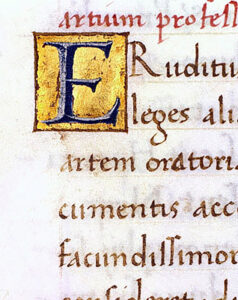 artium profess
ERuditu
leges ali
artem oratoria
cumentis acc
facundissimor